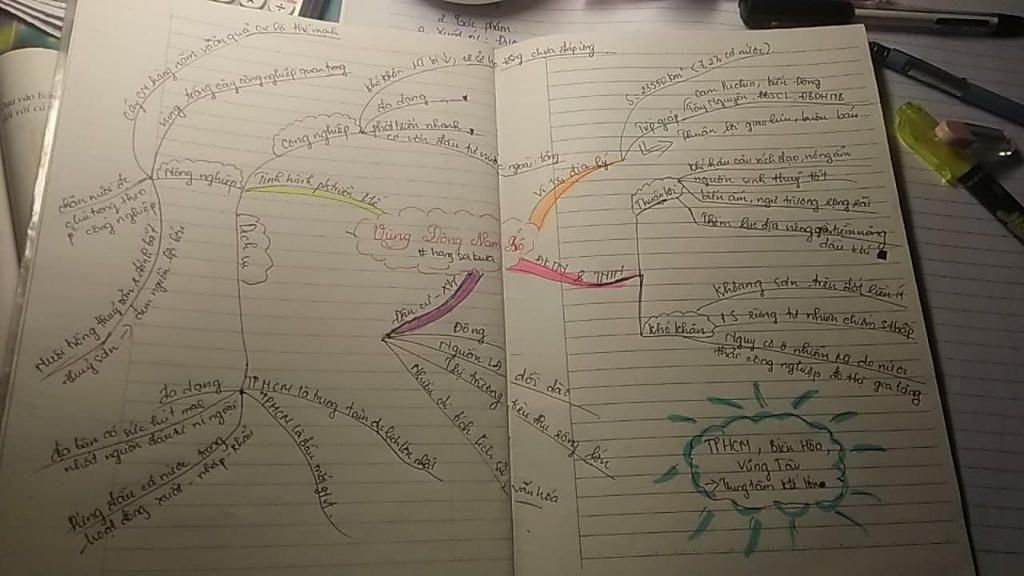 Vùng Đông Nam Bộ
Vị trí địa lý
S: 23550 km² (7,27% cả nước)
Tiếp giáp
Campuchia, biển Đông
Tây Nguyên, ĐBSCL, DHNTB
Thuận lợi giao lưu, buôn bán
ĐKTN & TNTN
Thuận lợi
Khí hậu cận xích đạo, nóng ẩm
nguồn sinh thuỷ tốt
biển ấm, ngư trường rộng hải
Thềm lục địa nông, giàu tiềm năng
dầu khí
Khó khăn
Khoáng sản trên đất liền ít
S rừng tự nhiên chiếm thấp
Nguy cơ ô nhiễm do nước
thải công nghiệp, đô thị gia tăng
TPHCM, Biên Hòa,
Vũng Tàu
→ Trung tâm KT lớn
Dân cư - XH
Đông
Nguồn LĐ dồi dào
Thị trường tiêu thụ rộng lớn
Nhiều di tích lịch sử văn hóa
Tình hình phát triển KT
Công nghiệp
chưa đáp ứng
đa dạng
phát triển nhanh
có vốn đầu tư nước ngoài tăng
Nông nghiệp
Vùng trồng cây công nghiệp quan trọng
Cây CN hàng năm, và cây ăn quả thế mạnh
chăn nuôi
chú trọng theo
công nghiệp
Nuôi trồng thuỷ sản, đánh bắt
thuỷ sản
đem nguồn lợi lớn
Dịch vụ
đa dạng
TPHCM là trung tâm du lịch lớn nhất
TPHCM là đầu mối GTVT
địa bàn có sức hút mạnh
nhất nguồn đầu tư nước ngoài
Dẫn đầu cả nước trong
hoạt động xuất - nhập khẩu